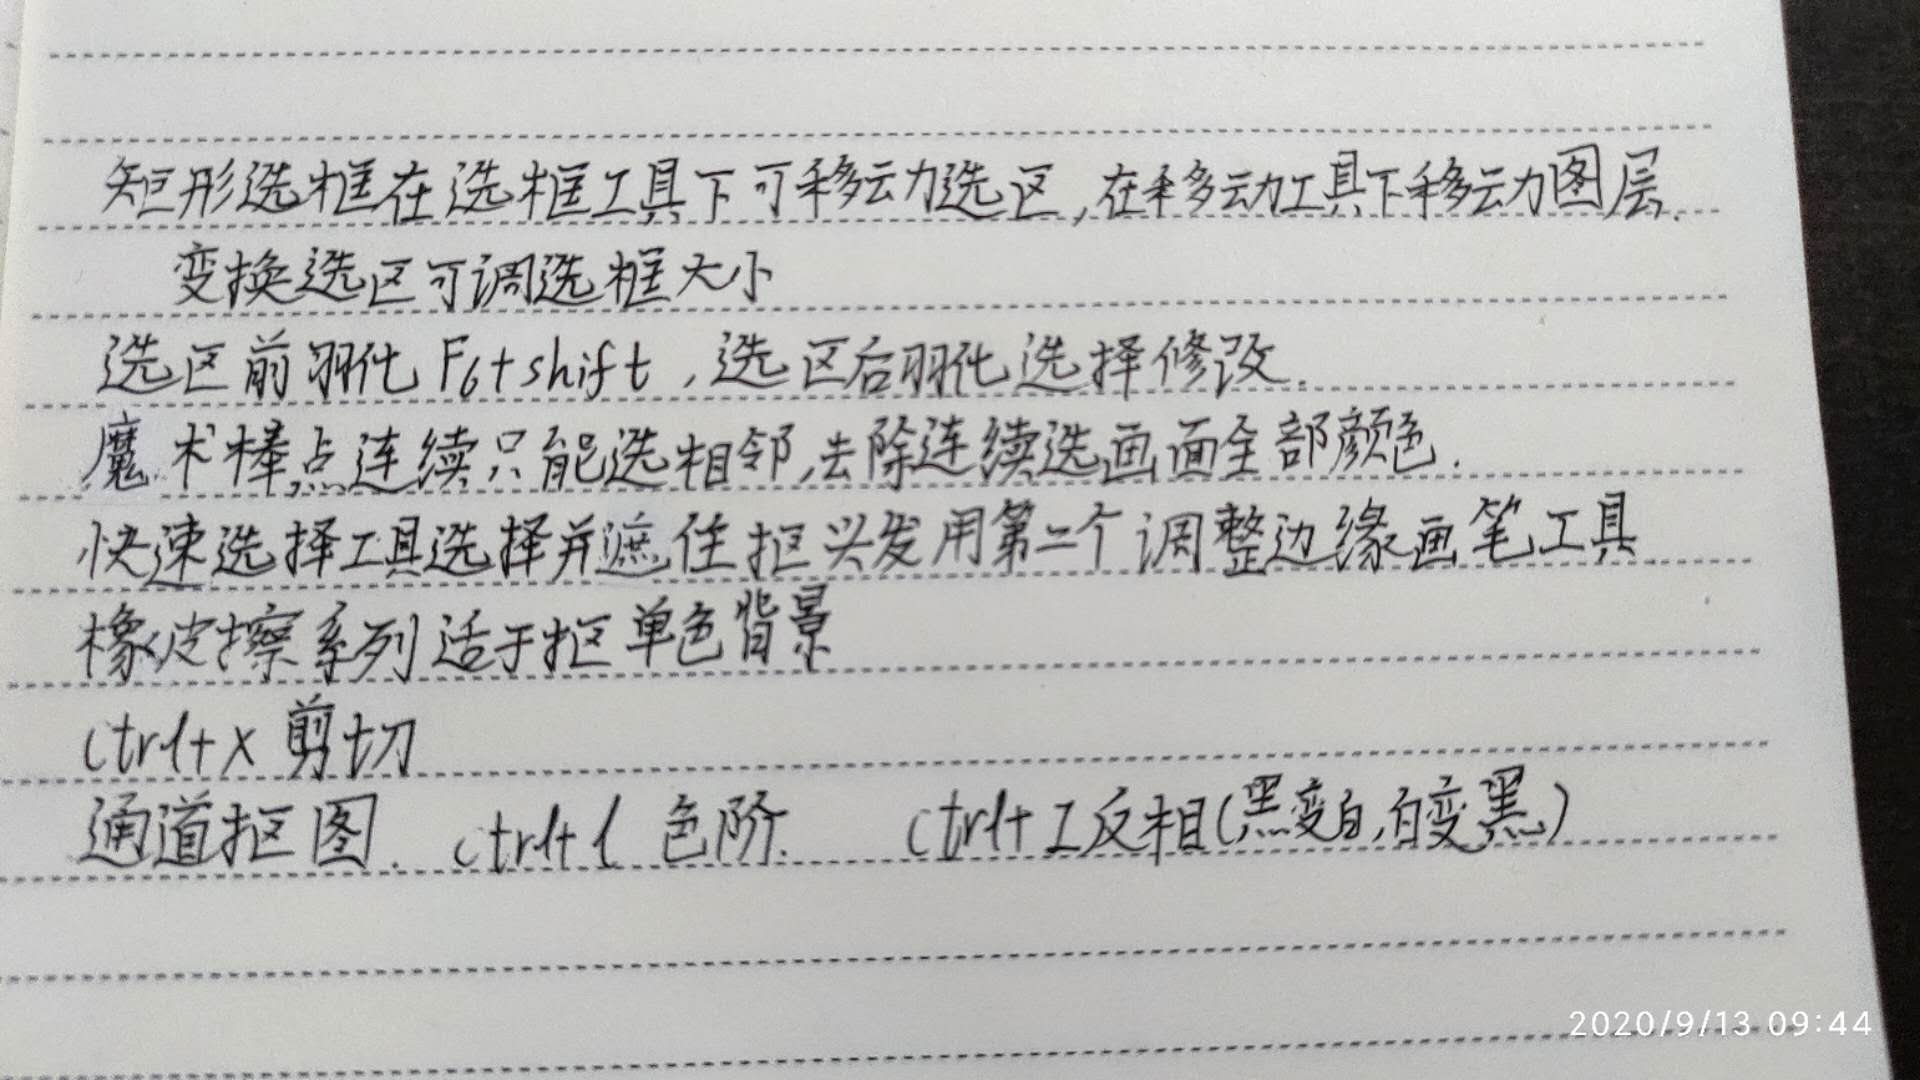 矩形选框在选框工具下可移动选区,在移动工具下移动图层.
变换选区可调选框大小
选区前羽化F6+shift,选区后羽化选择修改.
魔术棒点连续只能选相邻,去除连续选画面全部颜色.
快速选择工具选择并遮住抠头发用第二个调整边缘画笔工具
橡皮擦系列适于抠单色背景
ctrl+x 剪切
通道抠图. ctrl+l 色阶. ctrl+I反相(黑变白,白变黑)
2020/9/13 09:44